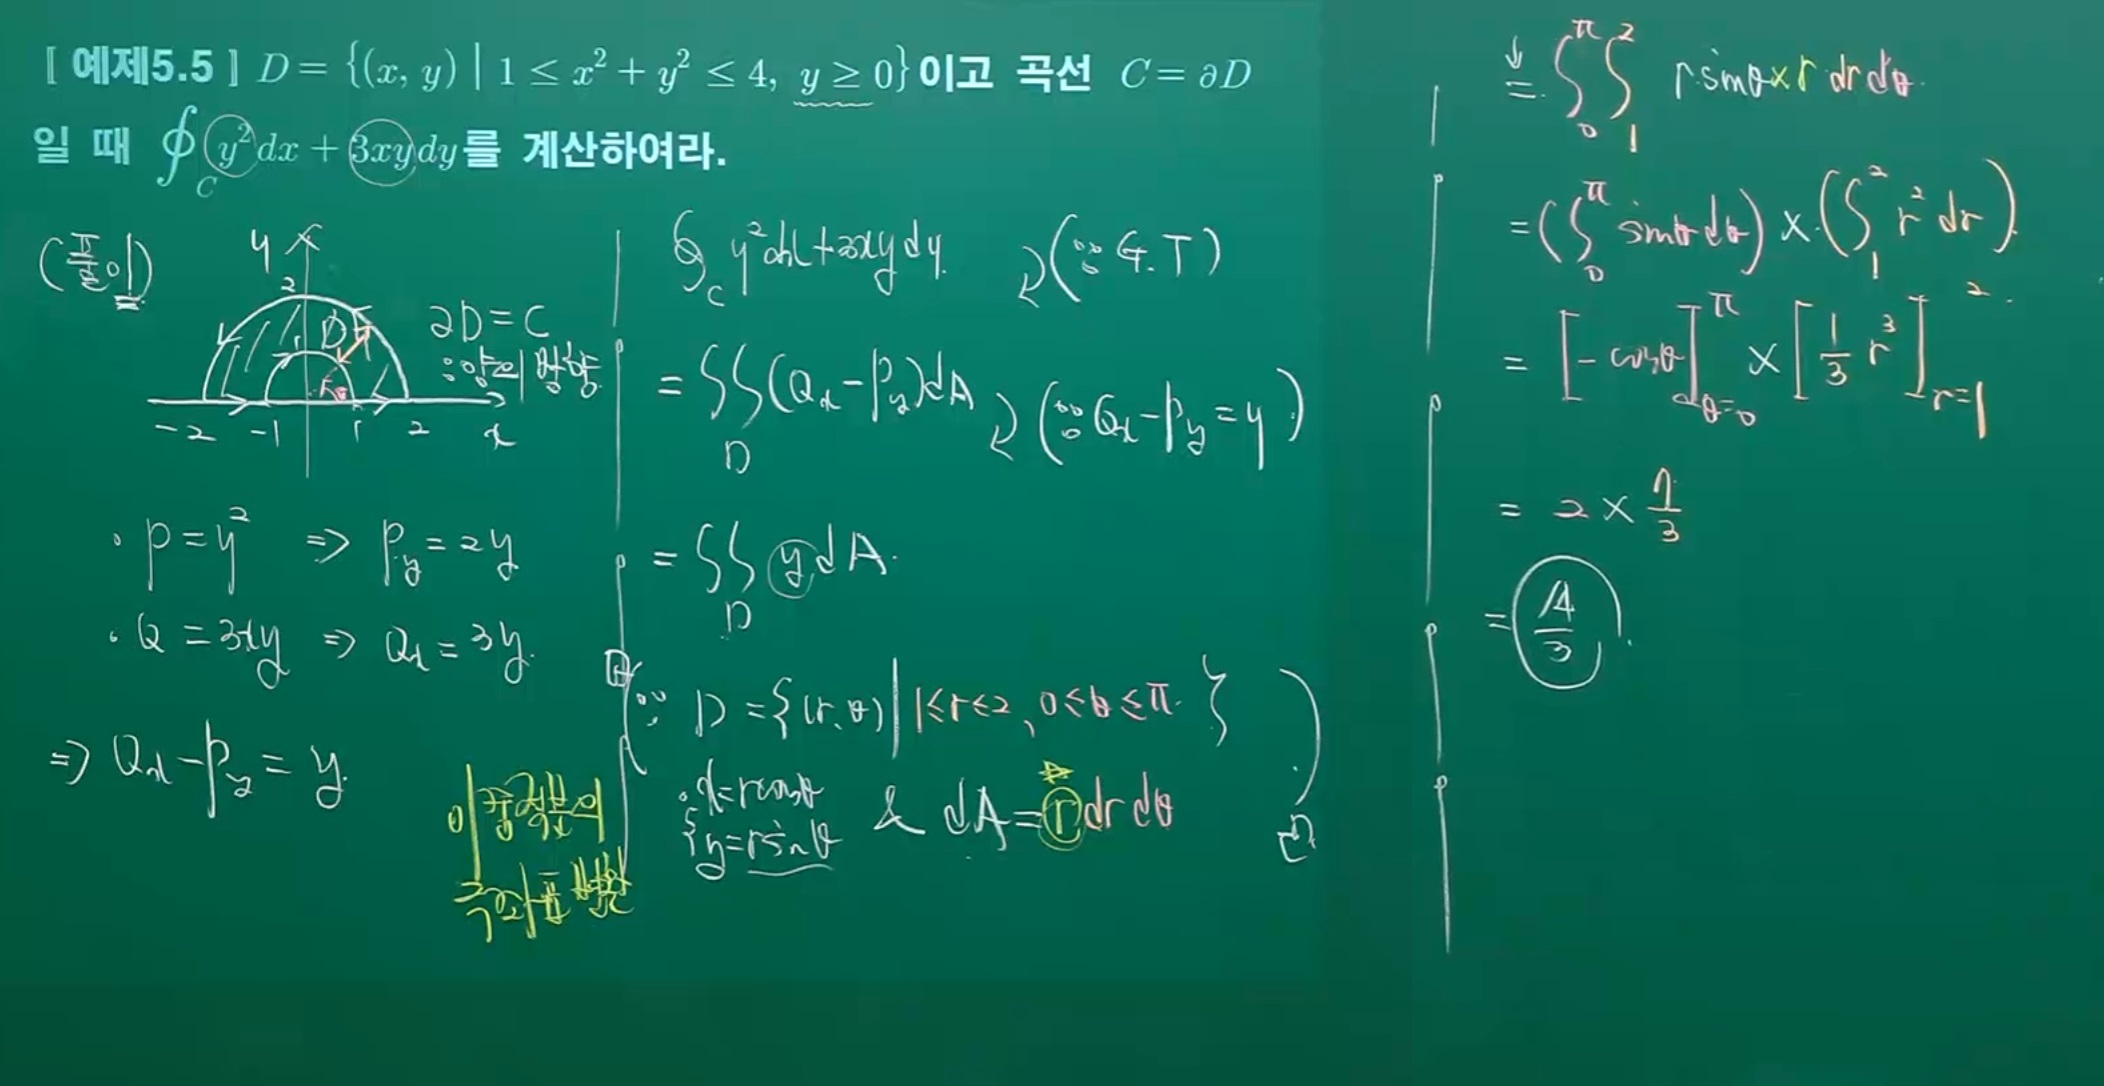 [ 예제5.5 ] D = {(x, y) | 1 ≤ x² + y² ≤ 4, y ≥ 0} 이고 곡선 C = ∂D
일 때 ∮_C y²dx + 3xydy를 계산하여라.
(풀이)
y
2
D
1
-2 -1 1 2 x
∂D = C
: 양의 방향
· P = y² ⇒ P_y = 2y
· Q = 3xy ⇒ Q_x = 3y.
⇒ Q_x - P_y = y.
∮_C y²dx + 3xydy. (∵ G.T)
= ∬_D (Q_x - P_y)dA (∵ Q_x - P_y = y)
= ∬_D y dA.
(∵ D = {(r, θ) | 1 ≤ r ≤ 2, 0 ≤ θ ≤ π}
x = rcosθ
y = rsinθ & dA = r dr dθ )
= ∫_0^π ∫_1^2 r sinθ × r dr dθ.
= (∫_0^π sinθ dθ) × (∫_1^2 r² dr).
= [-cosθ]_{θ=0}^π × [1/3 r³]_{r=1}^2.
= 2 × 7/3
= 14/3.